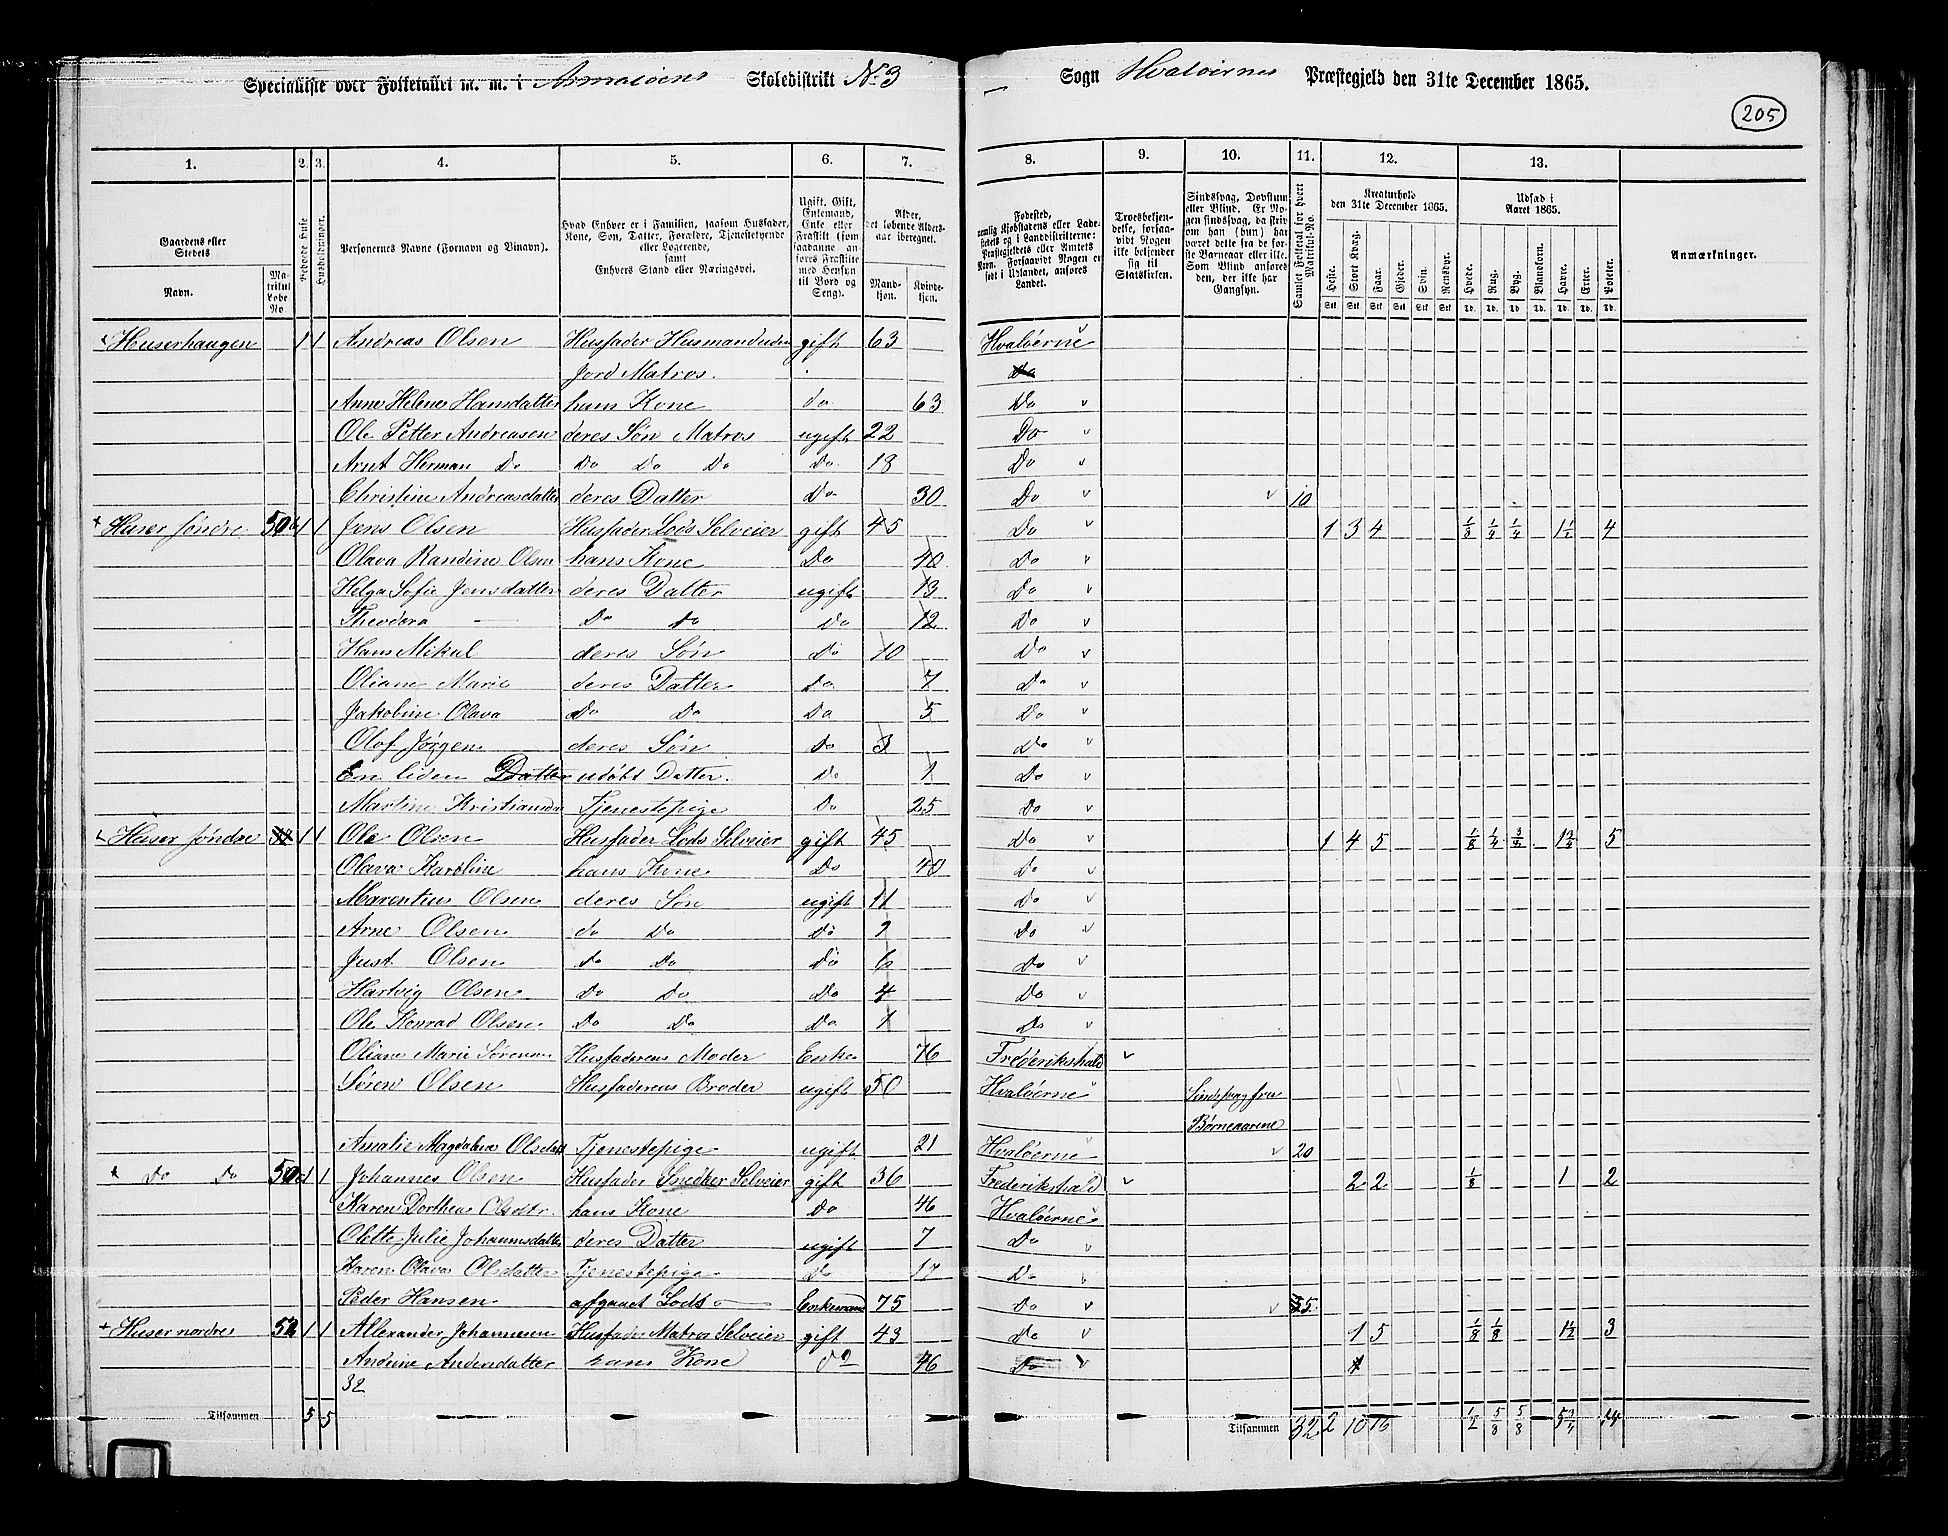 Specialliste over Folketallet m. m. i Asmaløens Skoledistrikt No 3 Sogn Hvaløernes Præstegjeld den 31te December 1865.
205
1. 2. 3. 4. 5. 6. 7. 8. 9. 10. 11. 12. 13.
Gaardens eller Stedets Navn.
Matrikul Løbe No
Beboede Huse
Husholdninger.
Personernes Navne (Fornavn og Tilnavn).
Hvad Enhver er i Familien, saasom Husfader, Kone, Søn, Datter, Forældre, Tjenestetyende eller Logerende, samt Enhvers Stand eller Næringsvei.
Ugift, Gift, Enkemand, Enke eller Fraskilt (som saadanne anføres Fraskilte med Hensyn til Bord og Seng).
Alder, det løbende Aldersaar iberegnet.
Mandkjøn. Kvindekjøn.
Fødested, nemlig Kjøbstadens eller Ladestedets og i Landdistrikterne: Præstegjeldets eller Amtets Navn. Forsaavidt Nogen er født i Udlandet, anføres Landet.
Troesbekjendelse, forsaavidt Nogen ikke bekjender sig til Statskirken.
Sindssvag, Døvstum eller Blind. Er Nogen sindssvag, da skrives om han (hun) har været dette fra de første Barneaar eller ikke. Som Blind anføres den, der ikke har Gangsyn.
Samlet Folketal for hvert Matrikul-No.
Kreaturhold den 31te December 1865.
Heste. Stort Kvæg. Faar. Gjeder. Svin. Rensdyr.
Udsæd i Aaret 1865.
Hvede. Rug. Byg. Blandkorn. Havre. Erter. Poteter.
Anmærkninger.
Huserhaugen 1 1 Andreas Olsen Husfader Husmand uden gift 63 Hvaløerne
Jord Matros.
Anne Helene Hansdatter hans Kone do 63 Do
Ole Petter Andreasen deres Søn Matros ugift 22 Do
Arnt Herman Do Do Do Do Do 18 Do
Christine Andreasdatter deres Datter Do 30 Do 10
Huser søndre 50 1 1 Jens Olsen Husfader Lods Selveier gift 45 Do 1 3 4 1/8 1/4 1/4 1 1/2 4
Olava Randine Olsen hans Kone Do 40 Do
Helga Sofie Jensdatter deres Datter ugift 13 Do
Theodora - Do do Do 12 Do
Hans Mikal deres Søn Do 10 Do
Oliane Marie deres Datter Do 7 Do
Jakobine Olava Do Do Do 5 Do
Olof Jørgen deres Søn Do 3 Do
En liden Datter udøbt Datter. Do 1 Do
Martine Kristiansd Tjenestepige Do 25 Do
Huser søndre 1 1 Ole Olsen Husfader Lods Selveier gift 45 Do 1 4 5 1/8 1/4 5
Olava Karoline hans Kone Do 40 Do
Marentius Olsen deres Søn ugift 11 Do
Arne Olsen do Do Do 9 Do
Just Olsen do Do Do 6 Do
Hartvig Olsen Do Do Do 4 Do
Ole Konrad Olsen. Do Do Do 1 Do
Oliane Marie Sørensen Husfaderens Moder Enke 76 Frederikshald
Søren Olsen Husfaderens Broder ugift 50 Hvaløerne Sindssvag fra
Børneaarene
Amalie Magdalena Olsdatt Tjenestepige ugift 21 Hvaløerne 20
Do Do 50 1 1 Johannes Olsen Husfader Snedker Selveier gift 36 Frederikshald 2 2 1/8 1 2
Karen Dorthea Olsdtr. hans Kone Do 46 Hvaløerne
Olette Julie Johannesdatter deres Datter ugift 7 Do
Karen Olava Olsdatter Tjenestepige Do 17 Do
Peder Hansen afgaaet Lods Enkemand 75 Do 5
Huser nordre 1 1 Allexander Johannesen Husfader Matros Selveier gift 43 Do 1 5 1/8 1/8 1 1/2 3
Andrine Andersdatter hans Kone do 46 Do
32
Tilsammen 5 5 Tilsammen 32 2 10 16 1/2 5/8 5/8 5 3/4 14